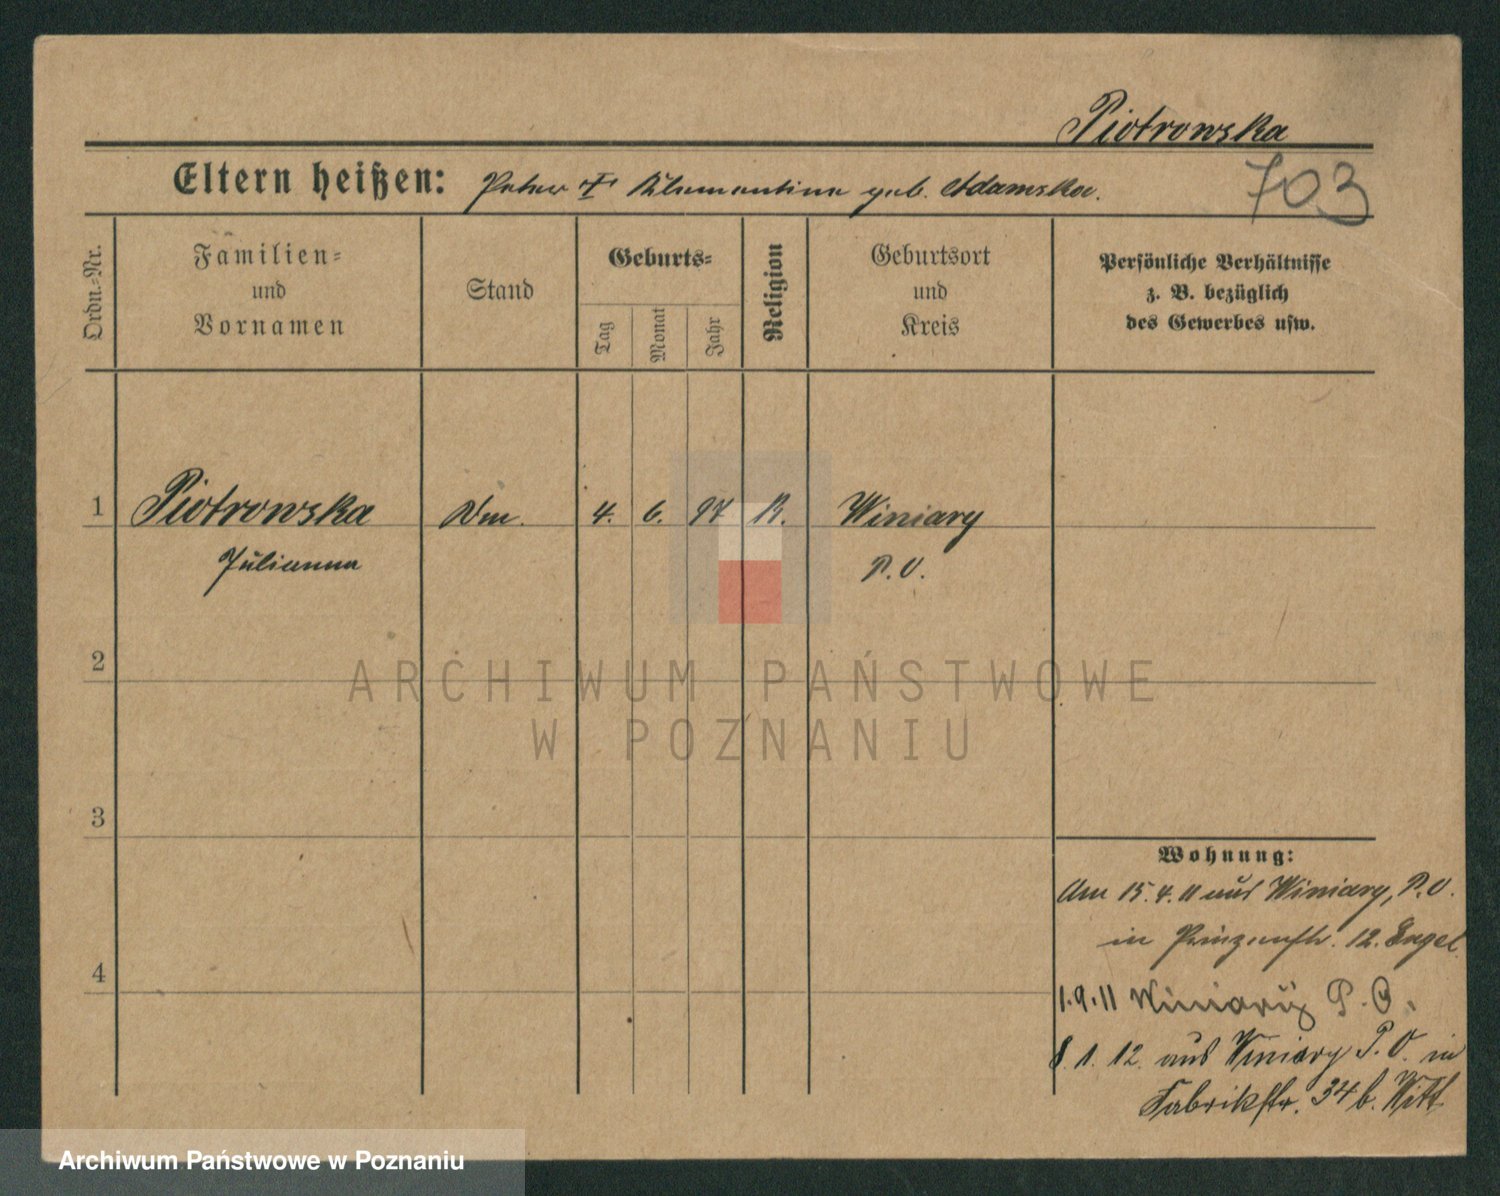 Piotrowska
Eltern heißen: Peter † Klementine geb. Adamska.
703
Ordn.-Nr.
Familien-
und
Vornamen
Stand
Geburts-
Tag
Monat
Jahr
Religion
Geburtsort
und
Kreis
Persönliche Verhältnisse
z. B. bezüglich
des Gewerbes usw.
1 Piotrowska 4. 6. 97 K. Winiary
Julianna P. O.
2
ARCHIWUM PAŃSTWOWE
W POZNANIU
3
Wohnung:
Am 15.4.11 aus Winiary, P. O.
in Prinzenstr. 12. Engel
4
1.9.11 Winiary P. O.
8. 1. 12. aus Winiary P. O. in
Fabrikstr. 34 b. Witt
Archiwum Państwowe w Poznaniu